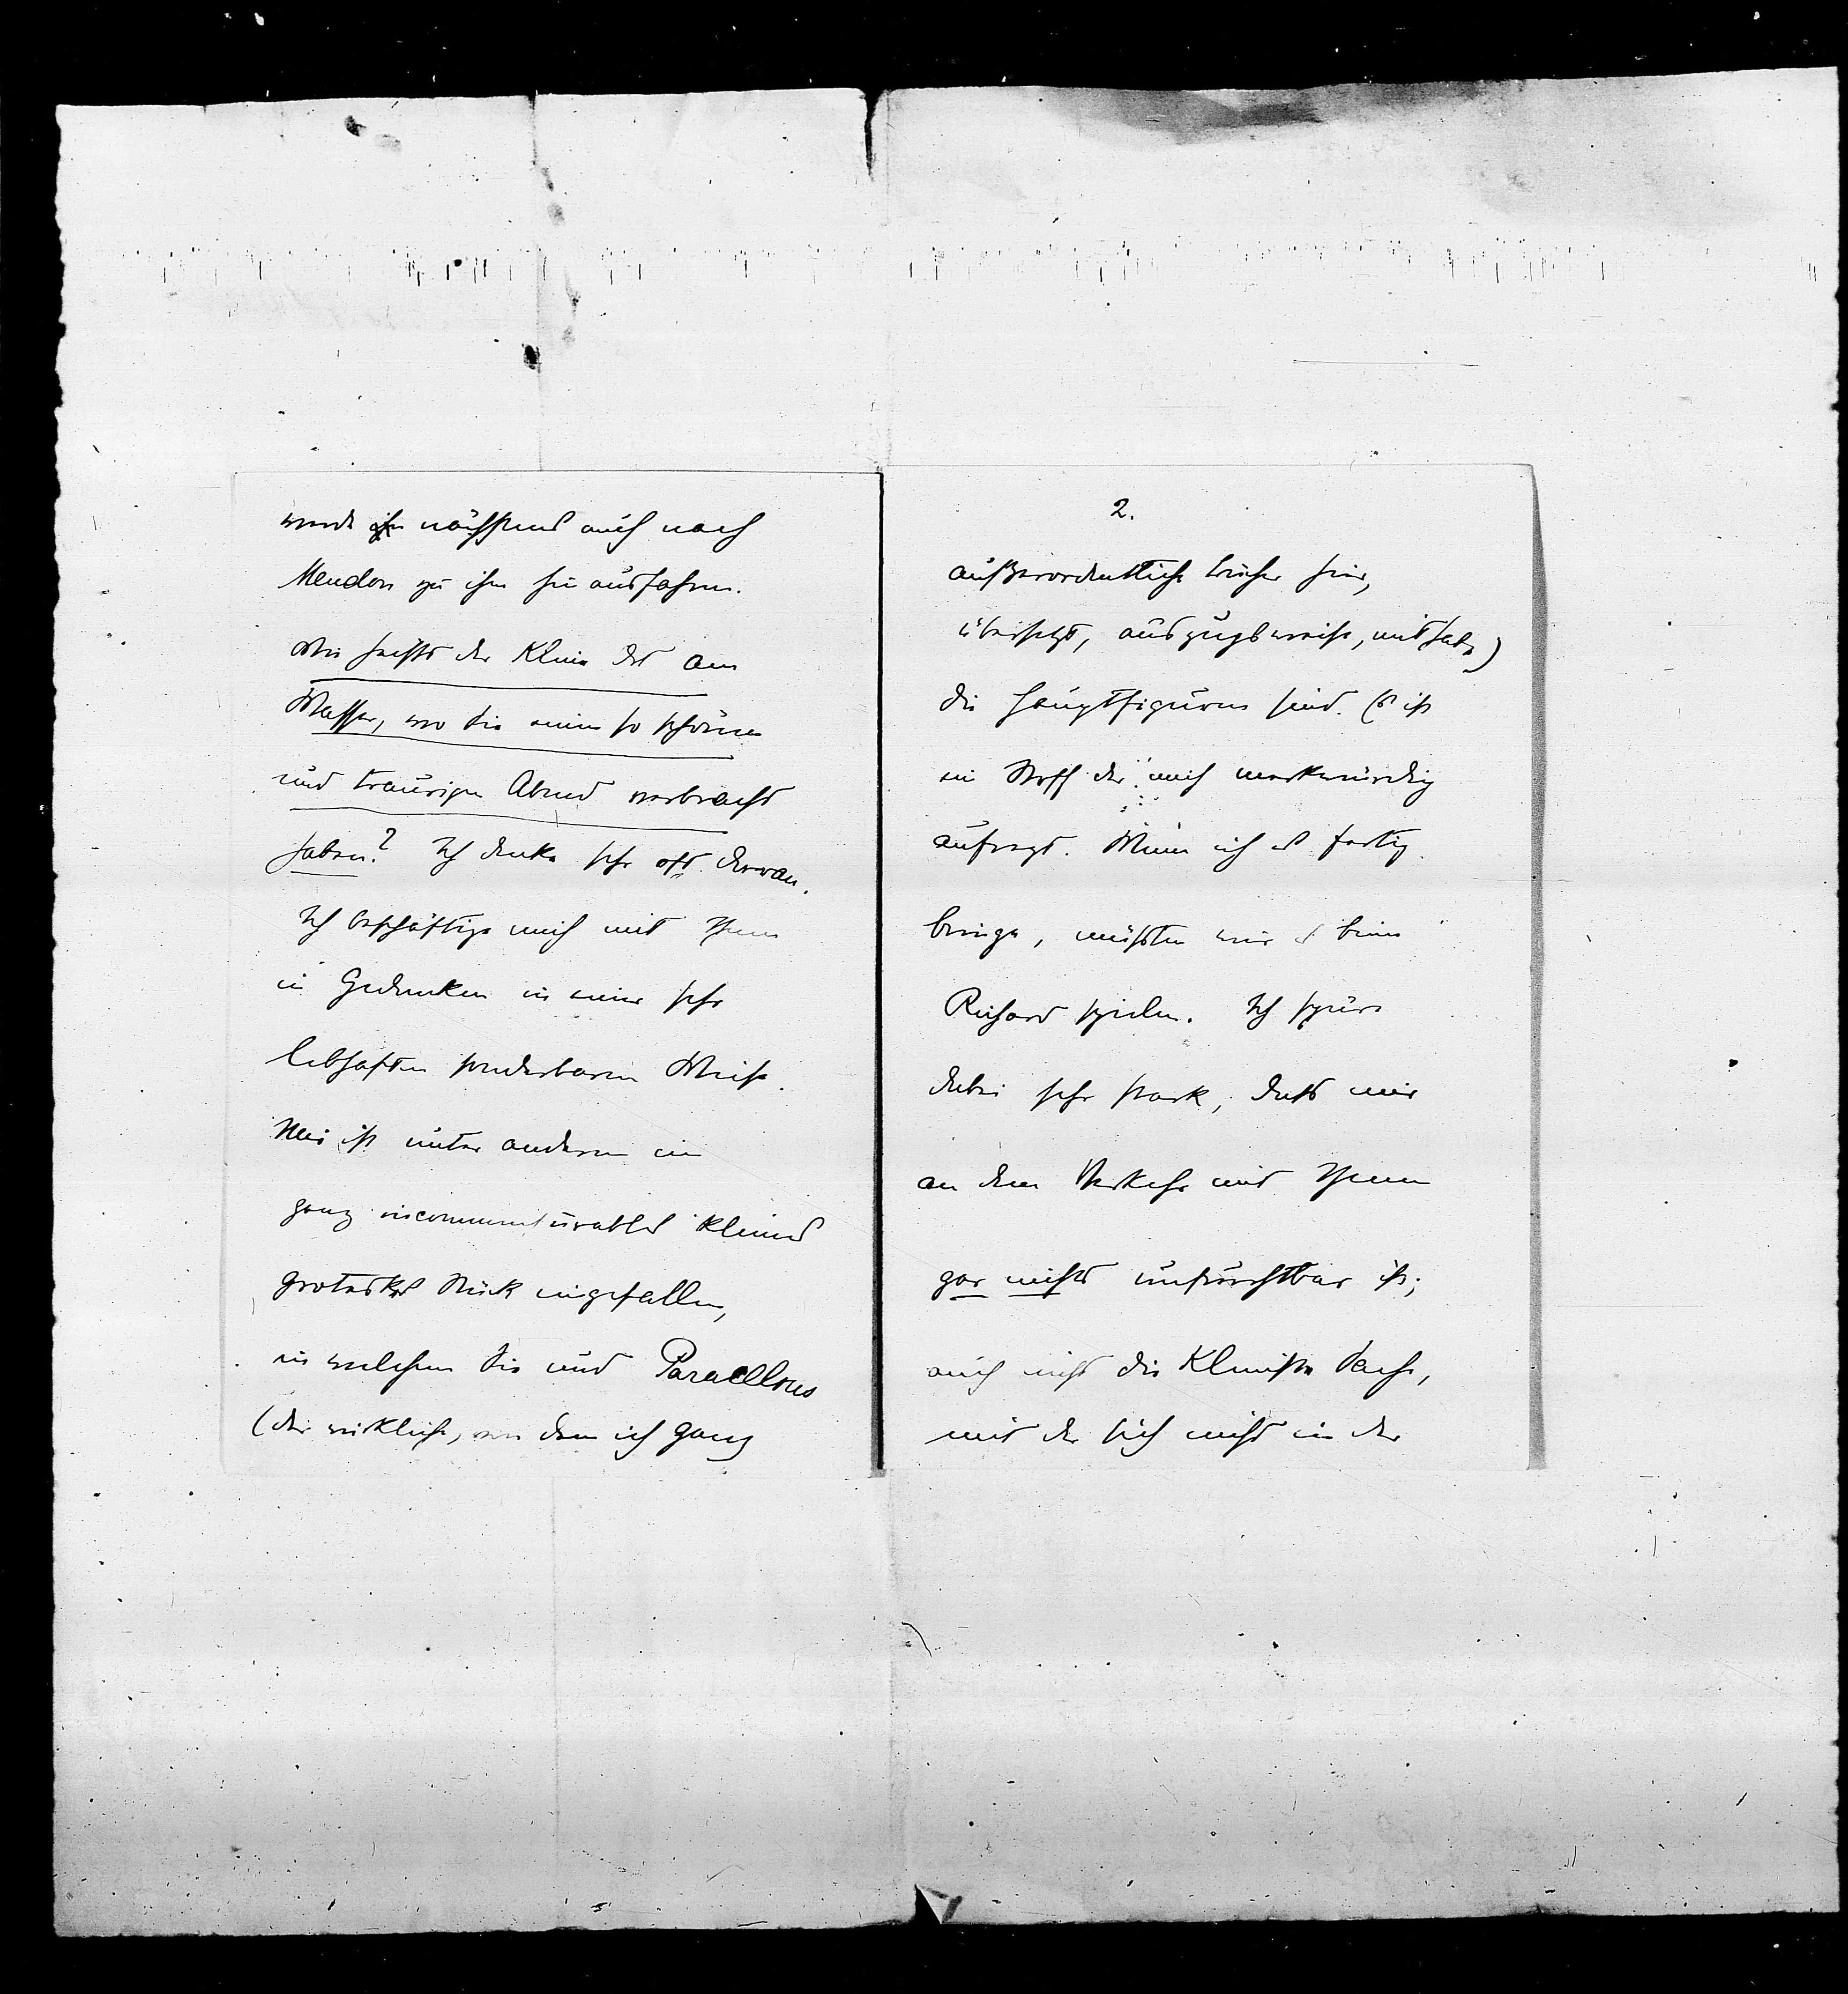 werde ihn nächstens auch nach
Meudon zu ihm hinausfahren.
Wie heißt der kleine Ort am
Wasser, wo Sie einen so schönen
und traurigen Abend verbracht
haben? Ich denke sehr oft daran.
Ich beschäftige mich mit Ihnen
in Gedanken in einer sehr
lebhaften sonderbaren Weise.
Mir ist unter anderm ein
ganz incommensurables kleines
groteskes Stück eingefallen,
in welchem Sie und Paracelsus
(der wirkliche, von dem ich ganz
2.
außerordentliche Bücher hier,
übersetzt, auszugsweise, mithabe)
die Hauptfiguren sind. Es ist
ein Stoff der mich merkwürdig
aufregt. Wenn ich es fertig
bringe, müssten wir es beim
Richard spielen. Ich spüre
dabei sehr stark, dass mir
an dem Verkehr mit Ihnen
gar nichts unfruchtbar ist;
auch nicht die kleinste Sache,
mit der sich nicht in der